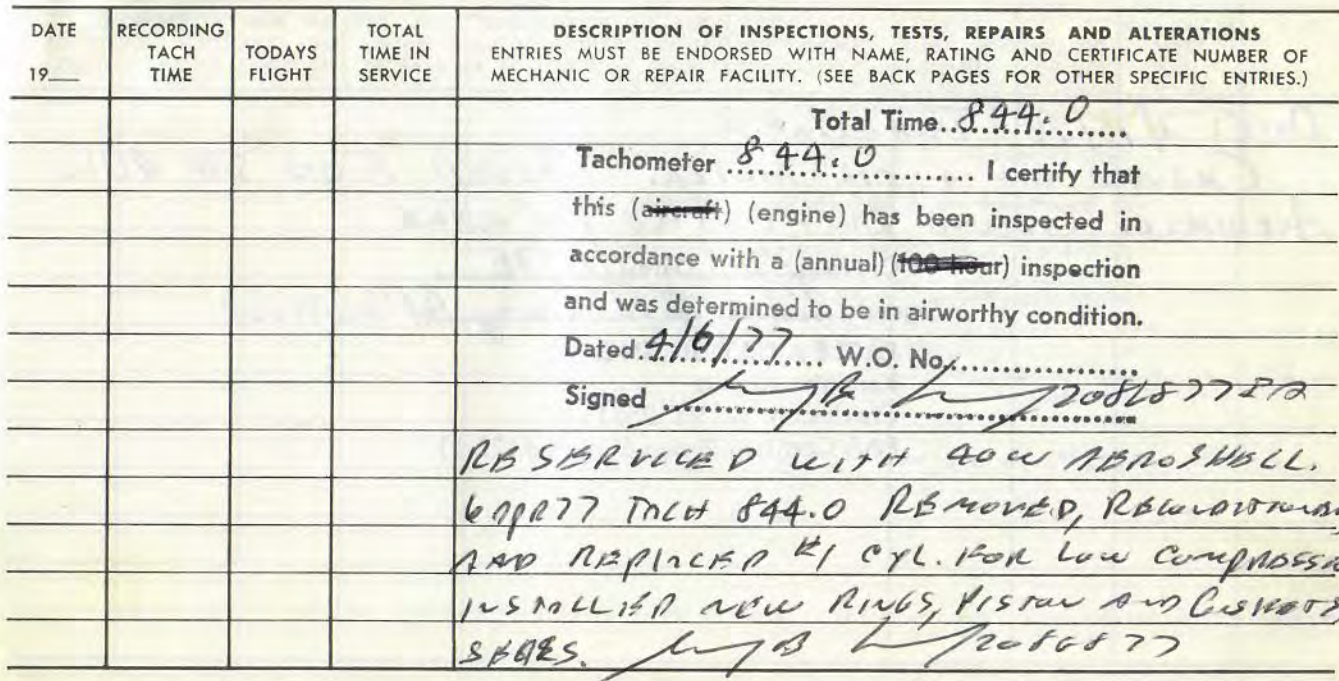 DATE
19__
RECORDING TACH TIME
TODAYS FLIGHT
TOTAL TIME IN SERVICE
DESCRIPTION OF INSPECTIONS, TESTS, REPAIRS AND ALTERATIONS
ENTRIES MUST BE ENDORSED WITH NAME, RATING AND CERTIFICATE NUMBER OF
MECHANIC OR REPAIR FACILITY. (SEE BACK PAGES FOR OTHER SPECIFIC ENTRIES.)
Total Time..844.0
Tachometer 844.0 I certify that
this (aircraft) (engine) has been inspected in
accordance with a (annual) (100 hour) inspection
and was determined to be in airworthy condition.
Dated 4/6/77 W.O. No.
Signed
RESERVICED WITH 40W AEROSHELL.
6 APR 77 TACH 844.0 REMOVED,
AND REPLACED #1 CYL. FOR LOW
INSTALLED NEW RINGS, PISTON AND
SEALS. 2086877